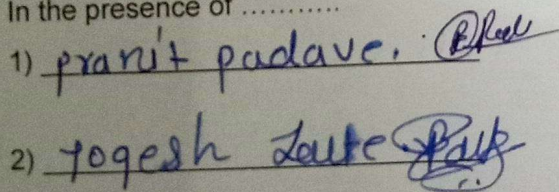 In the presence of ...........
1) pranit padave.
2) Yogesh